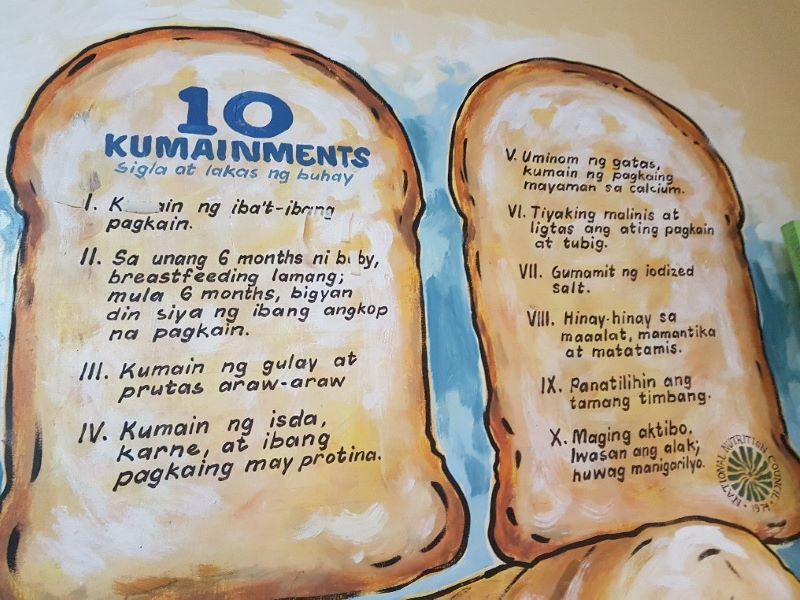 10
KUMAINMENTS
Sigla at lakas ng buhay
I. ng iba't-ibang
pagkain.
II. Sa unang 6 months ni
breastfeeding lamang;
mula 6 months, bigyan
din siya ng ibang angkop
na pagkain.
III. Kumain ng gulay at
prutas araw-araw
IV. Kumain ng isda,
karne, at ibang
pagkaing may protina.
V. Uminom ng gatas,
kumain ng pagkaing
mayaman sa calcium.
VI. Tiyaking malinis at
ligtas ang ating pagkain
at tubig.
VII. Gumamit ng iodized
salt.
VIII. Hinay-hinay sa
maaalat, mamantika
at matatamis.
IX. Panatilihin ang
tamang timbang.
X. Maging aktibo.
Iwasan ang alak;
huwag manigarilyo.
NATIONAL NUTRITION COUNCIL • 1974 •